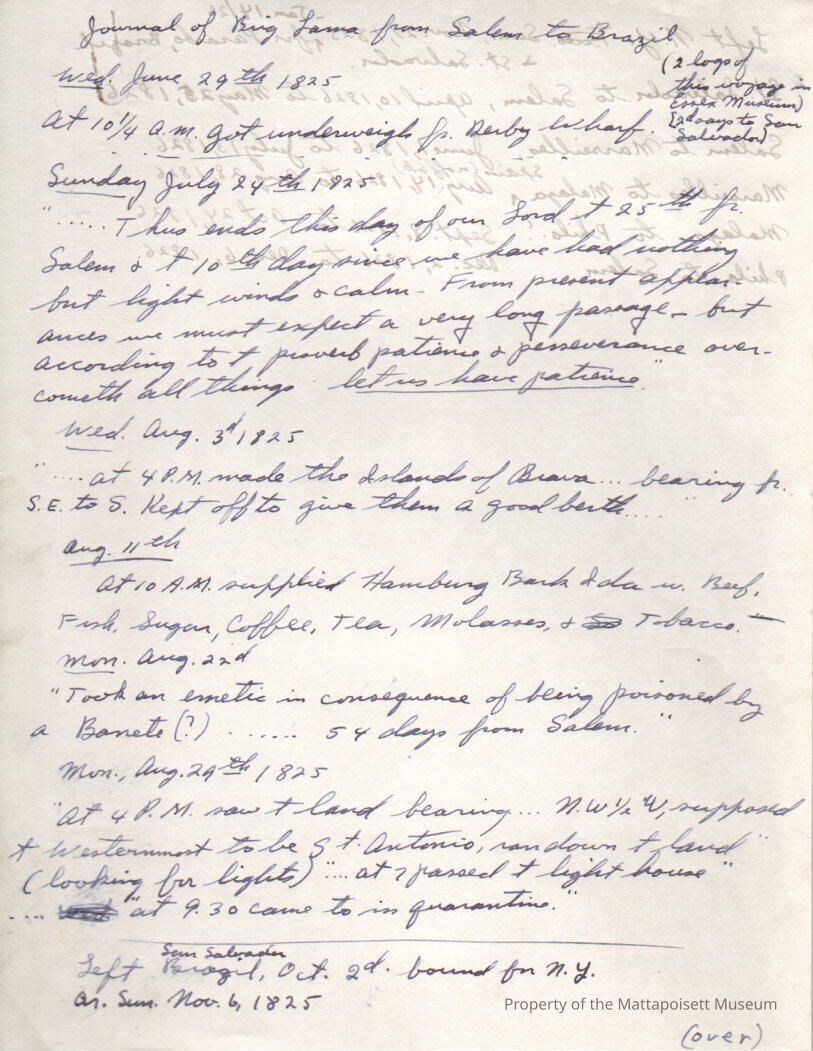 Journal of Brig Lama from Salem to Brazil
(2 logs of
this voyage in
Essex Museum)
[2 days to San
Salvador]
Wed. June 29th 1825
At 10 1/4 a.m. got underweigh fr. Derby Wharf.
Sunday July 24th 1825
"..... Thus ends this day of our Lord & t 25th fr.
Salem & t 10th day since we have had nothing
but light winds & calm - From present appear-
ances we must expect a very long passage - but
according to t proverb patience & perseverance over-
cometh all things let us have patience"
Wed. Aug. 3d 1825
".... at 4 P.M. made the Islands of Brava... bearing fr.
S.E. to S. Kept off to give them a good berth...."
Aug. 11th
At 10 A.M. supplied Hamburg Bark Ida w. Beef,
Fish, Sugar, Coffee, Tea, Molasses, & Tobacco."
Mon. Aug. 22d
"Took an emetic in consequence of being poisoned by
a Banete (?) ...... 54 days from Salem."
Mon., Aug. 29th 1825
"At 4 P.M. saw t land bearing... N.W 1/2 W, supposed
t Westernmost to be St. Antonio, ran down t land"
(looking for lights) ".... at 7 passed t light house"
.... "at 9.30 came to in quarantine."
San Salvador
Left Brazil, Oct. 2d. bound for N.Y.
Ar. Sun. Nov. 6, 1825
Property of the Mattapoisett Museum
(over)